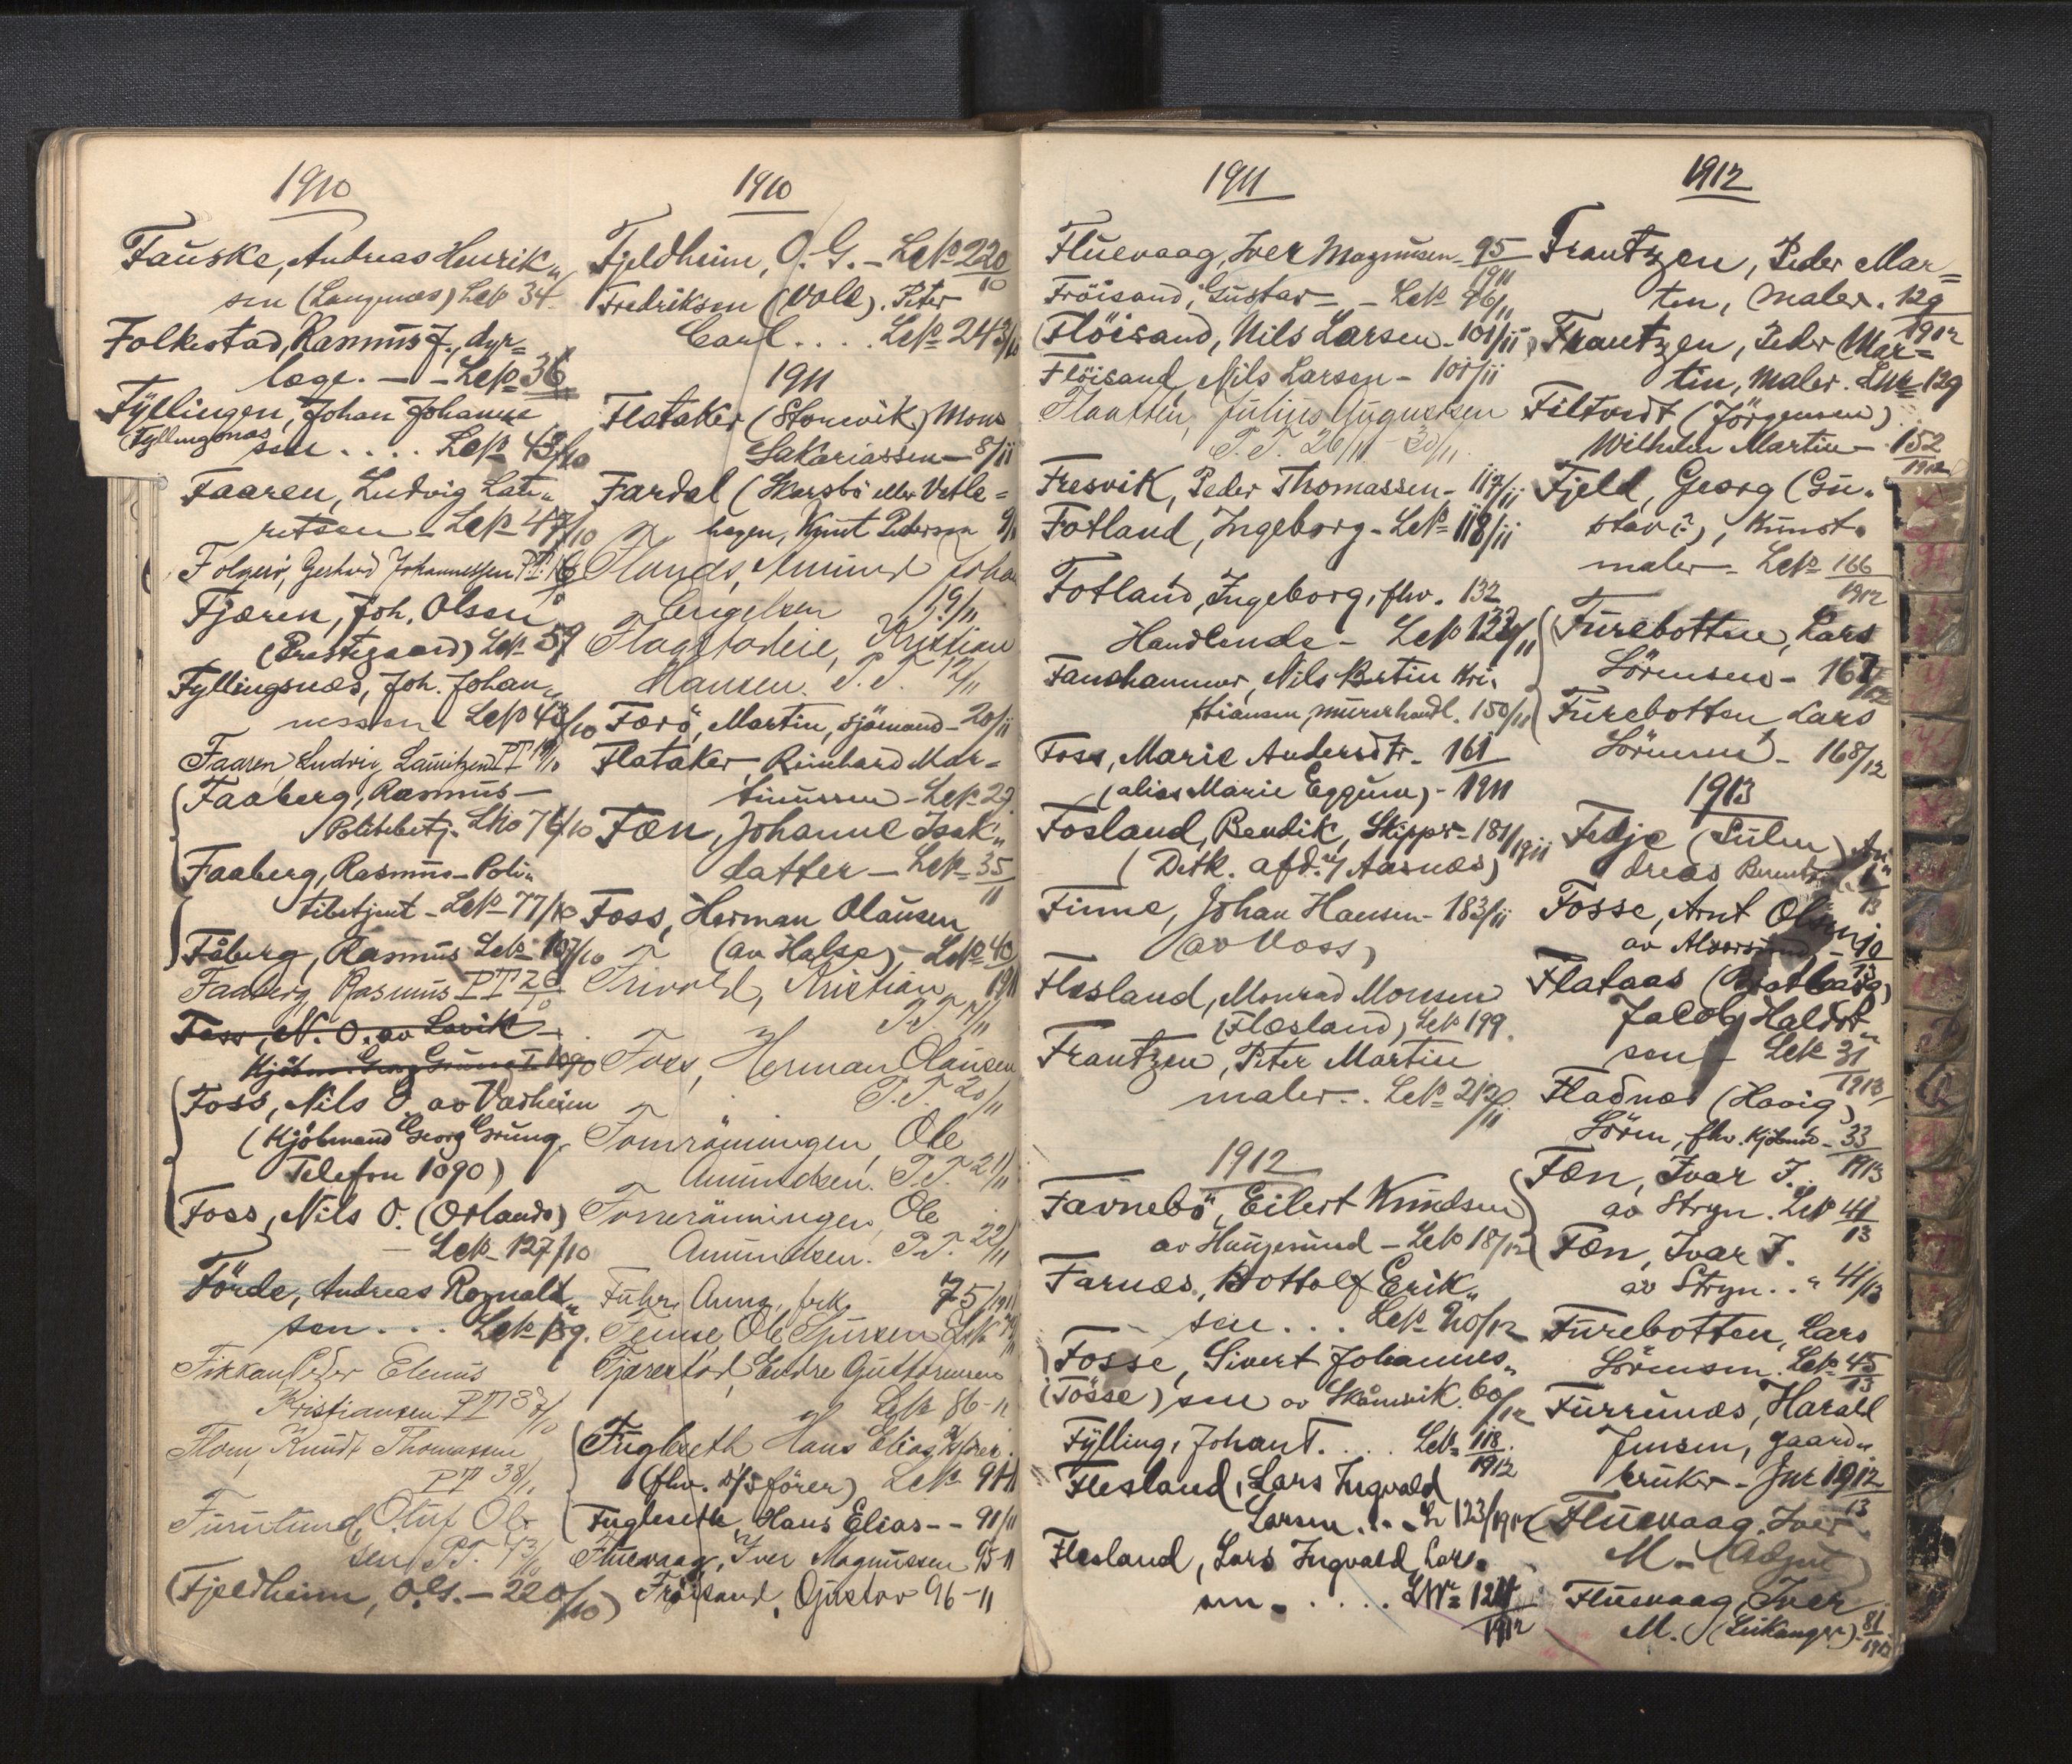 1910
Fauske, Andreas Henrik„
sen (Langenæs) Lek 34
Folkestad, Rasmus J., dyr=
læge. — - Lek 36
Fyllingen, Johan Johanne
Fyllingsnæs
sen . . . . Lek 43/10
Faaren, Ludvig Lau„
ritsen - Lek 47/10
Gerhard Johannessen P.T.
Fjæren, Joh. Olsen
(Prestegaard) Lek 59
Fyllingsnæs, Joh. Johan„
nessen - Lek 43/10
Faaren Ludvig Lauritzen P.T. 19/10
Faaberg, Rasmus —
Politibetj. 76/10
Faaberg, Rasmus - Poli„
tibetjent - Lek 77/10
Fåberg, Rasmus Lek 107/10
Faaberg, Rasmus P.T. 26/10
Foss, N. O. av Lavik —
Kjöbm. Georg Grung T. 1090
Foss, Nils O. av Vadheim
(Kjöbmand Georg Grung,
Telefon 1090)
Foss, Nils O. (Ortlando)
— Lek 127/10
Förde, Andreas Rognald„
sen . . . Lek 189.
Elenus
Kristiansen P.T. 37/10
Flom, Knudt Thomassen
P.T. 38/10
Furulund, Oluf Ol-
sen P.T. 43/10
(Fjeldheim, O. G. — 220/10)
1910
Fjeldheim, O. G. — Lek 220/10
Fredriksen (Vold). Peter
Carl . . . . Lek 243/10
1911
Flataker (Storevik) Mons
Sakariassen — 8/11
Fardal (Skarsbö eller Vetle=
hagen, Knut Pedersen 9/11
Johan
Engelsen 19/11
Kristian
Hansen. P.T. 12/11
Færö, Martin, sjömand - 20/11
Flataker, Reinhard Mar=
tinussen - Lek 29
Fæn, Johanne Isak„
datter — Lek 35/11
Foss, Herman Olausen
(av Halse) - Lek 40/1911
Kristian
P.T. 17/11
Foss, Herman Olausen
P.T. 20/11
Ole
Amundsen. P.T. 21/11
Ole
Amundsen. P.T. 22/11
Führ, Anna, frk. 75/1911
Endre Guttormsen
Lek 86-11
Fugleseth Hans Elias
(fhv. d/s förer) Lek 91/11
Fugleseth, Hans Elias - - 91/11
Fluevaag, Iver Magnussen 95-11
Fröisand, Gustav 96-11
1911
Fluevaag, Iver Magnusen 95/1911
Fröisand, Gustav - - Lek 96/11
(Flöisand, Nils Larsen - 101/11)
Flöisand, Nils Larsen - 101/11
Julius Augustsen
P.T. 26/11 - 30/11
Fresvik, Peder Thomassen - 117/11
Fotland, Ingeborg - Lek 118/11
Fotland, Ingeborg, fhv. 132
Handlende - Lek 132/11
Fanehammer, Nils Bertin Kri„
stiansen, murerhandl. 150/11
Foss, Marie Andersdtr. 161
(alias Marie Eggum) - 1911
Fosland, Bendik, Skipper - 181/1911
(Detk. afd. Aasnæs)
Finne, Johan Hansen - 183/11
(av Voss)
Flesland, Monrad Monsen
(Flæsland) Lek 199.
Frantzen, Peter Martin
maler . . Lek 212/11
1912
Favnebö, Eilert Knudsen
av Haugesund - Lek 18/12
Farnæs, Bottolf Erik„
sen . . . Lek 20/12
Fosse, Sivert Johannes„
(Fösse) sen av Skånevik. 60/12
Fylling, Johan T. . . . Lek 118/1912
Flesland, Lars Ingvald
Larsen . . . 123/1912
Flesland, Lars Ingvald Lar„
sen . . . . . 124/1912
1912
Frantzen, Peder Mar=
tin, (maler. 129/1912
Frantzen, Peder Mar=
tin, maler. 129
Filtvedt (Jörgensen)
Wilhelm Martin - 152/1912
Fjeld, Georg (Gu„
stav?), Kunst„
maler - Lek 166/1912
Furebotten, Lars
Sörensen - 167/12
Furebotten Lars
Sörensen - 168/12
1913
Fedje (Sulen) An„
dreas
Fosse, Arnt Olsen
av Alversund - 10/13
Flataas
Jakob Haldor„
sen - Lek 31/1913
Fladnæs (Havig)
Sören, fhv. Kjöbmd - 33/1913
Fæn, Ivar J.
av Stryn. Lek 41/13
Fæn, Ivar J.
av Stryn . . " 41/13
Furebotten, Lars
Sörensen. Lek 45/13
Furrunæs, Harald
Jensen, gaard„
bruker - 1912/13
(Fluevaag, Iver
M. - (Adjut)
Fluevaag, Iver
M. (Leikanger) 81/1913